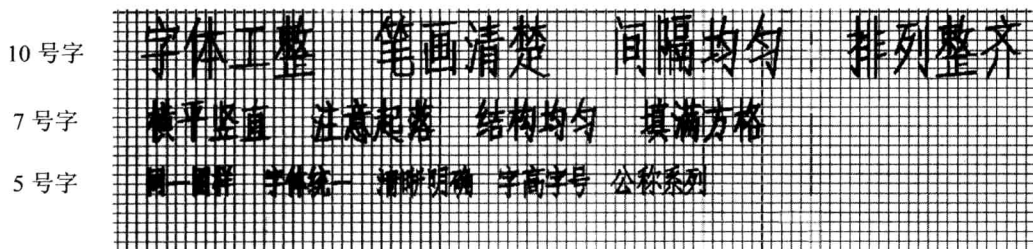 10 号字 字体工整 笔画清楚 间隔均匀 排列整齐
7 号字 横平竖直 注意起落 结构均匀 填满方格
5 号字 同一图样 字体统一 清晰明确 字高字号 公称系列